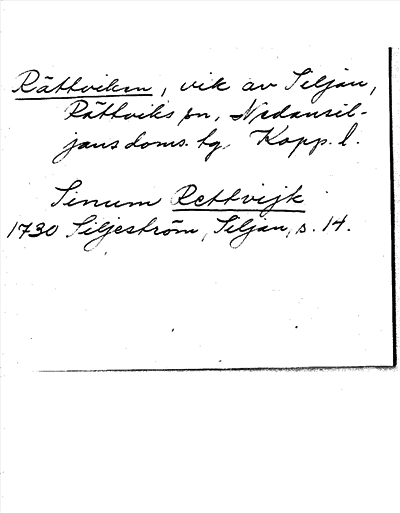 Rättviken, vik av Siljan,
Rättviks sn, Nedansil-
jans doms. tg, Kopp. l.
Sinum Rettvijk
1730 Siljeström, Siljan, s. 14.